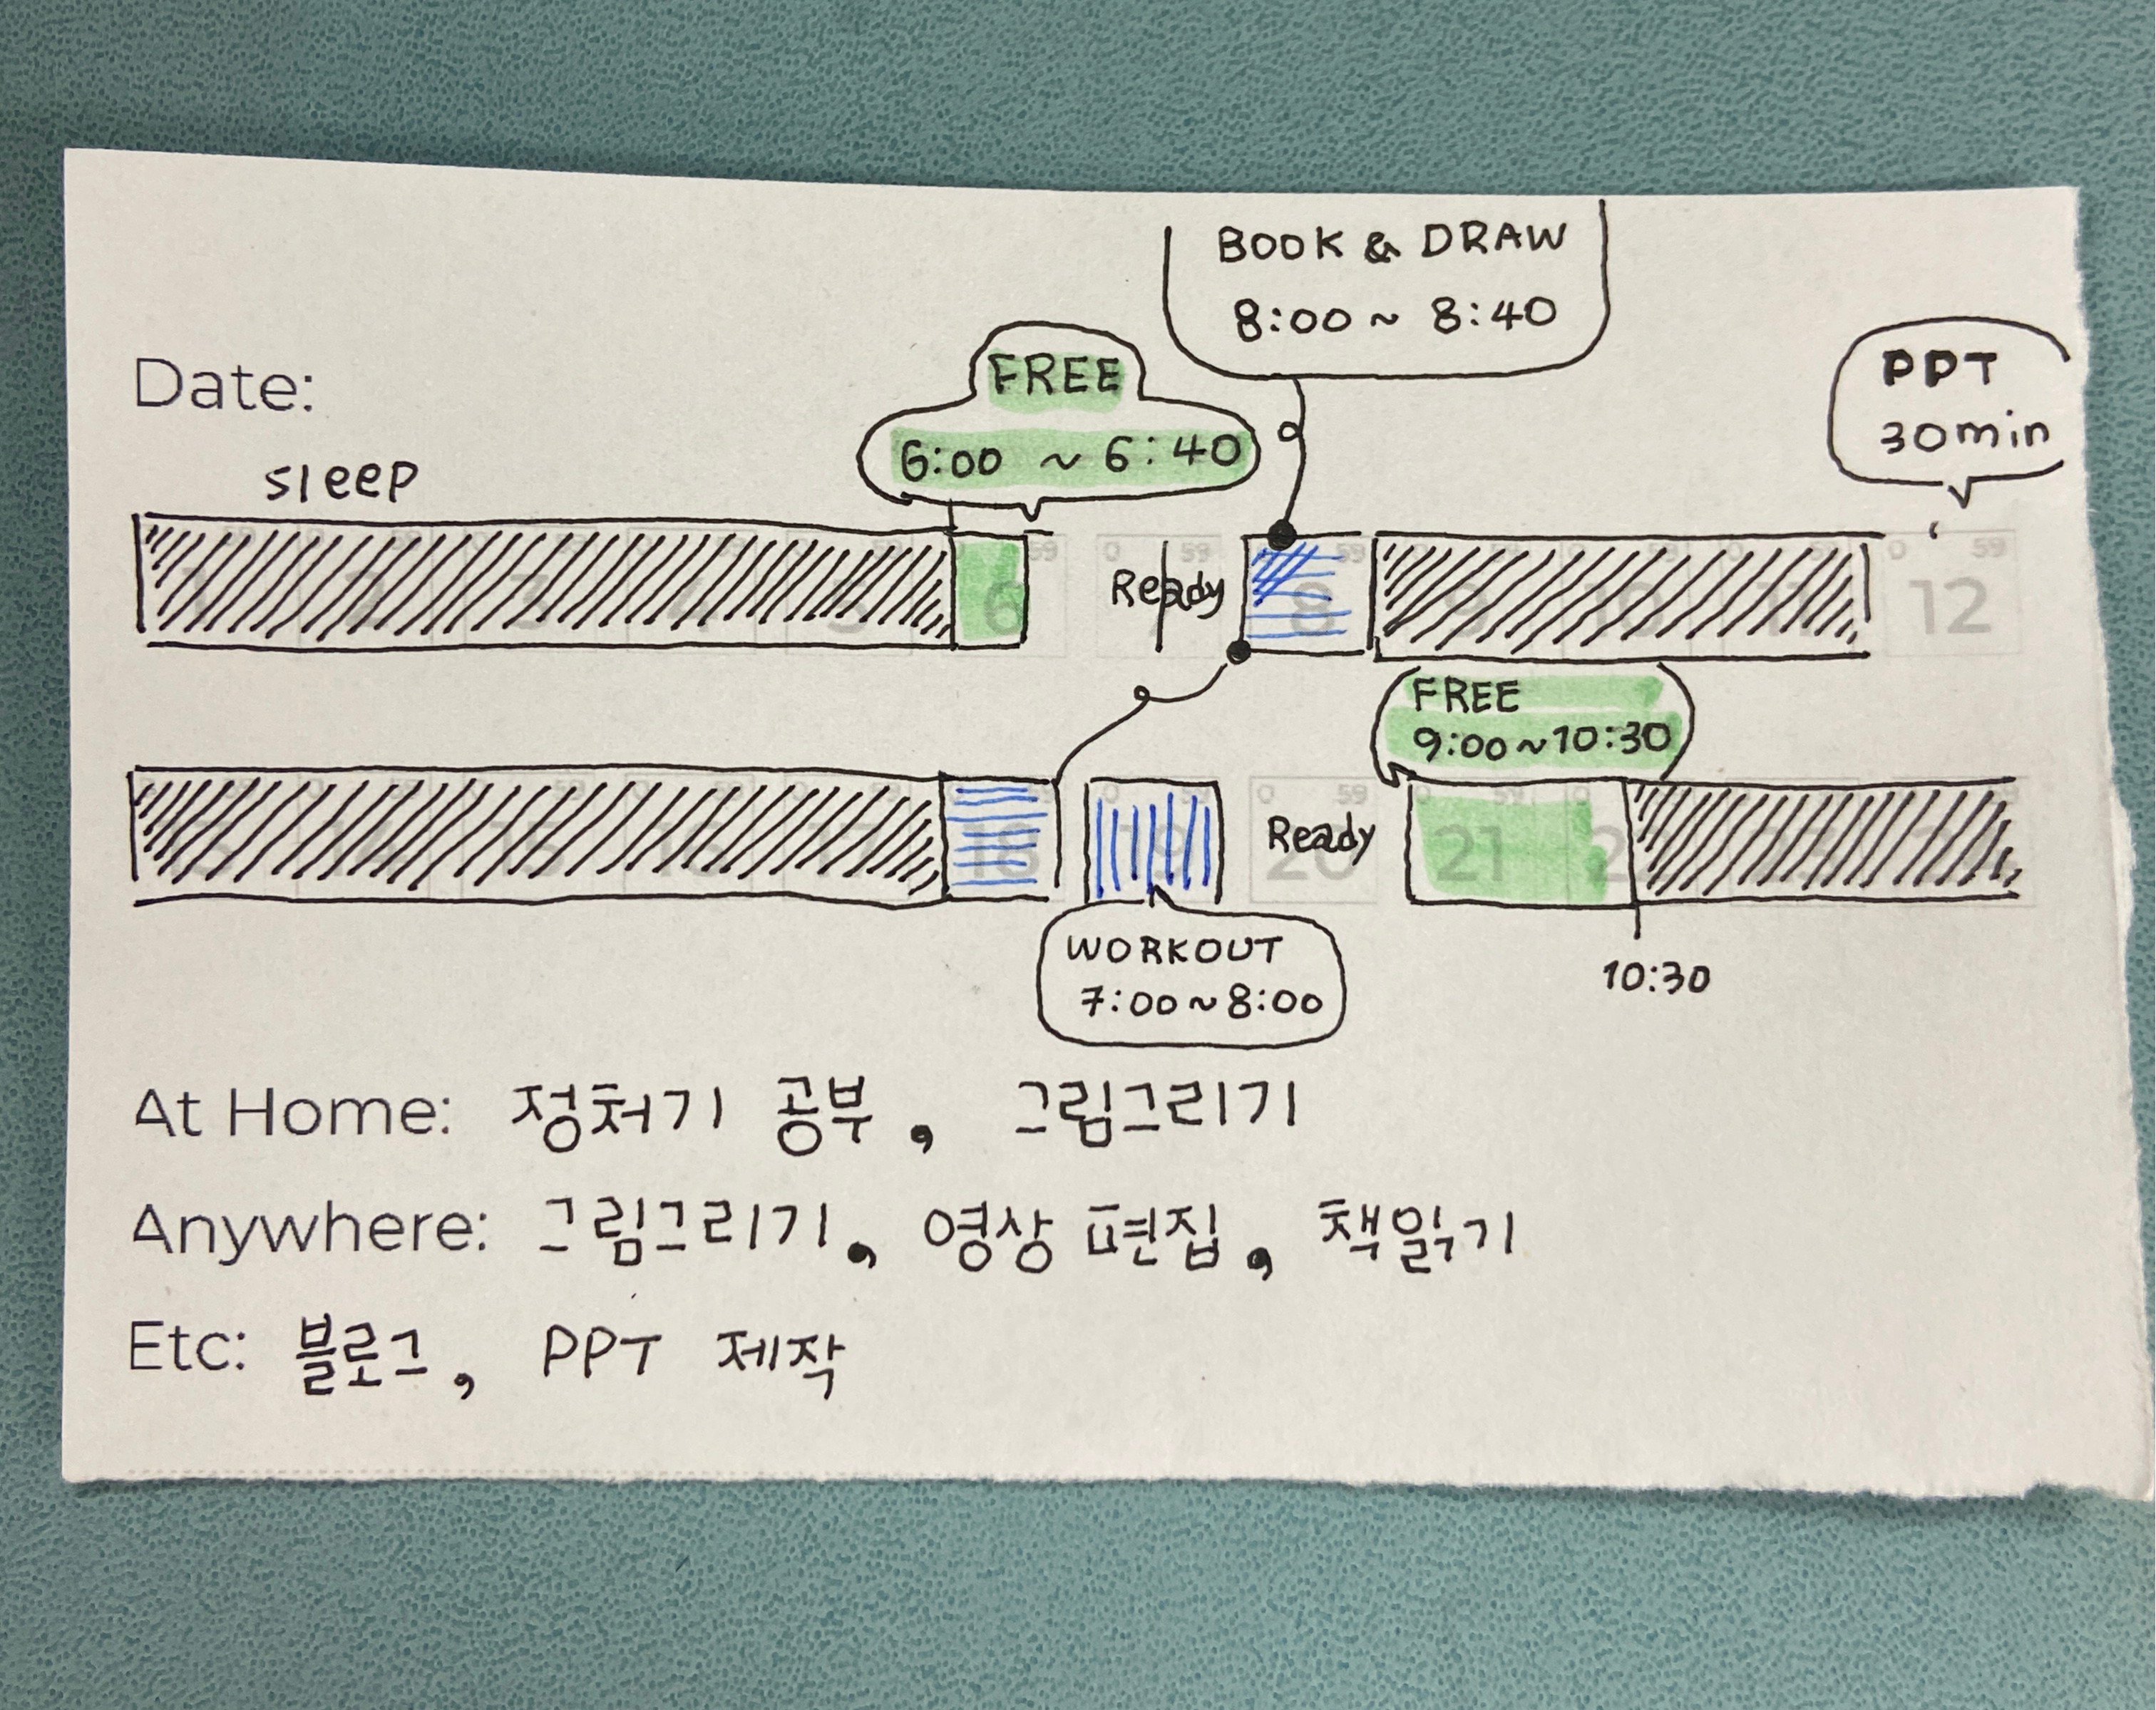 BOOK & DRAW
8:00 ~ 8:40
Date:
FREE
6:00 ~ 6:40
PPT
30min
sleep
1 2 3 4 5 6 Ready 8 9 10 11 12
FREE
9:00~10:30
15 16 18 19 20 Ready 21
WORKOUT
7:00~8:00
10:30
At Home: 정처기 공부, 그림그리기
Anywhere: 그림그리기, 영상 편집, 책읽기
Etc: 블로그, PPT 제작